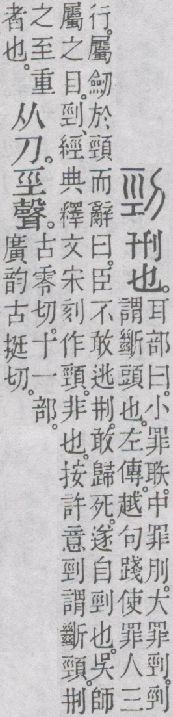 剄刑也。
耳部曰。小罪聅。中罪刖。大罪剄。剄
謂斷頭也。左傳。越句踐使罪人三
行。屬劒於頸而辭曰。臣不敢逃刑。敢歸死。遂自剄也。吳師
屬之目。剄、經典釋文宋刻作頸。非也。按許意剄謂斷頸。刑
之至重
者也。
从刀。巠聲。
古零切。十一部。
廣韵古挺切。